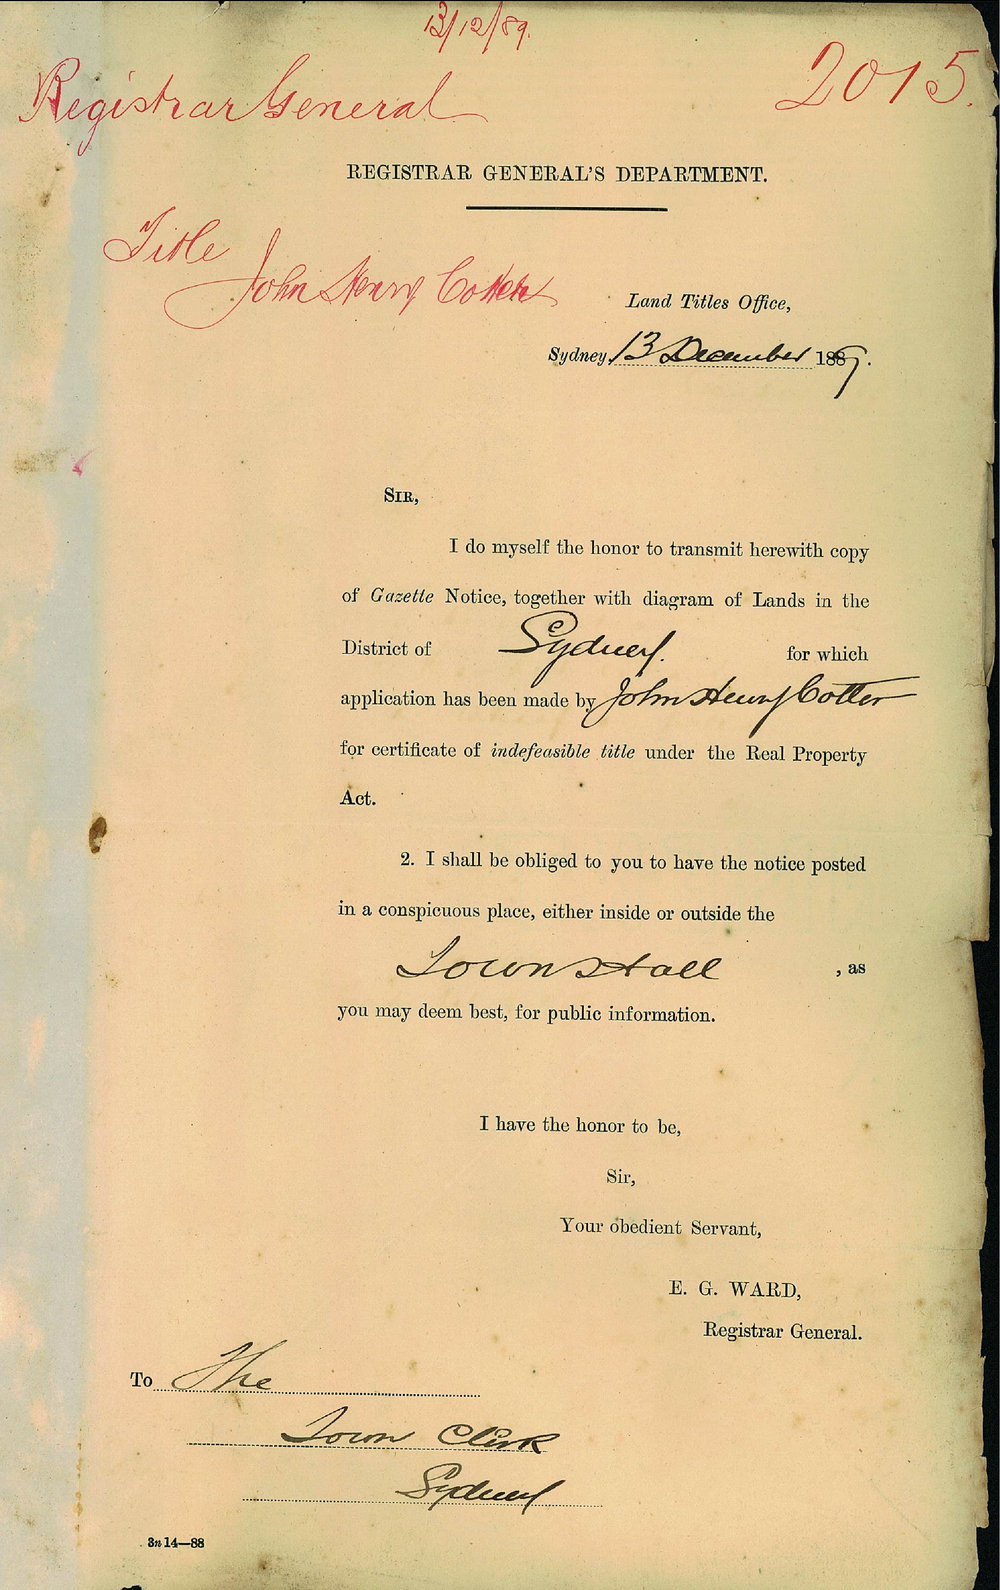 13/12/89.
Registrar General
2015.
REGISTRAR GENERAL'S DEPARTMENT.
Title
John Henry Cotter
Land Titles Office,
Sydney, 13 December 1889.
SIR,
I do myself the honor to transmit herewith copy
of Gazette Notice, together with diagram of Lands in the
District of Sydney. for which
application has been made by John Henry Cotter
for certificate of indefeasible title under the Real Property
Act.
2. I shall be obliged to you to have the notice posted
in a conspicuous place, either inside or outside the
Town Hall , as
you may deem best, for public information.
I have the honor to be,
Sir,
Your obedient Servant,
E. G. WARD,
Registrar General.
To The
Town Clerk
Sydney
3n 14—88